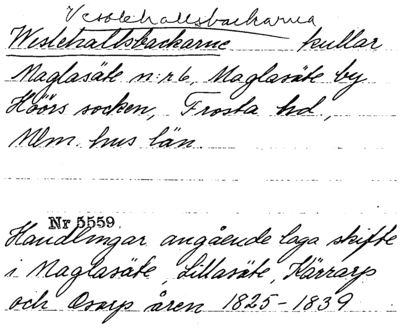 Vesslehallsbackarna
Wesslehallsbackarne kullar
Maglasäte nr 6, Maglasäte by
Höörs socken, Frosta hd,
Mlm. hus län.
Nr 5559.
Handlingar angående laga skifte
i Maglasäte, Lillasäte, Kärrarp
och Osarp åren 1825-1839